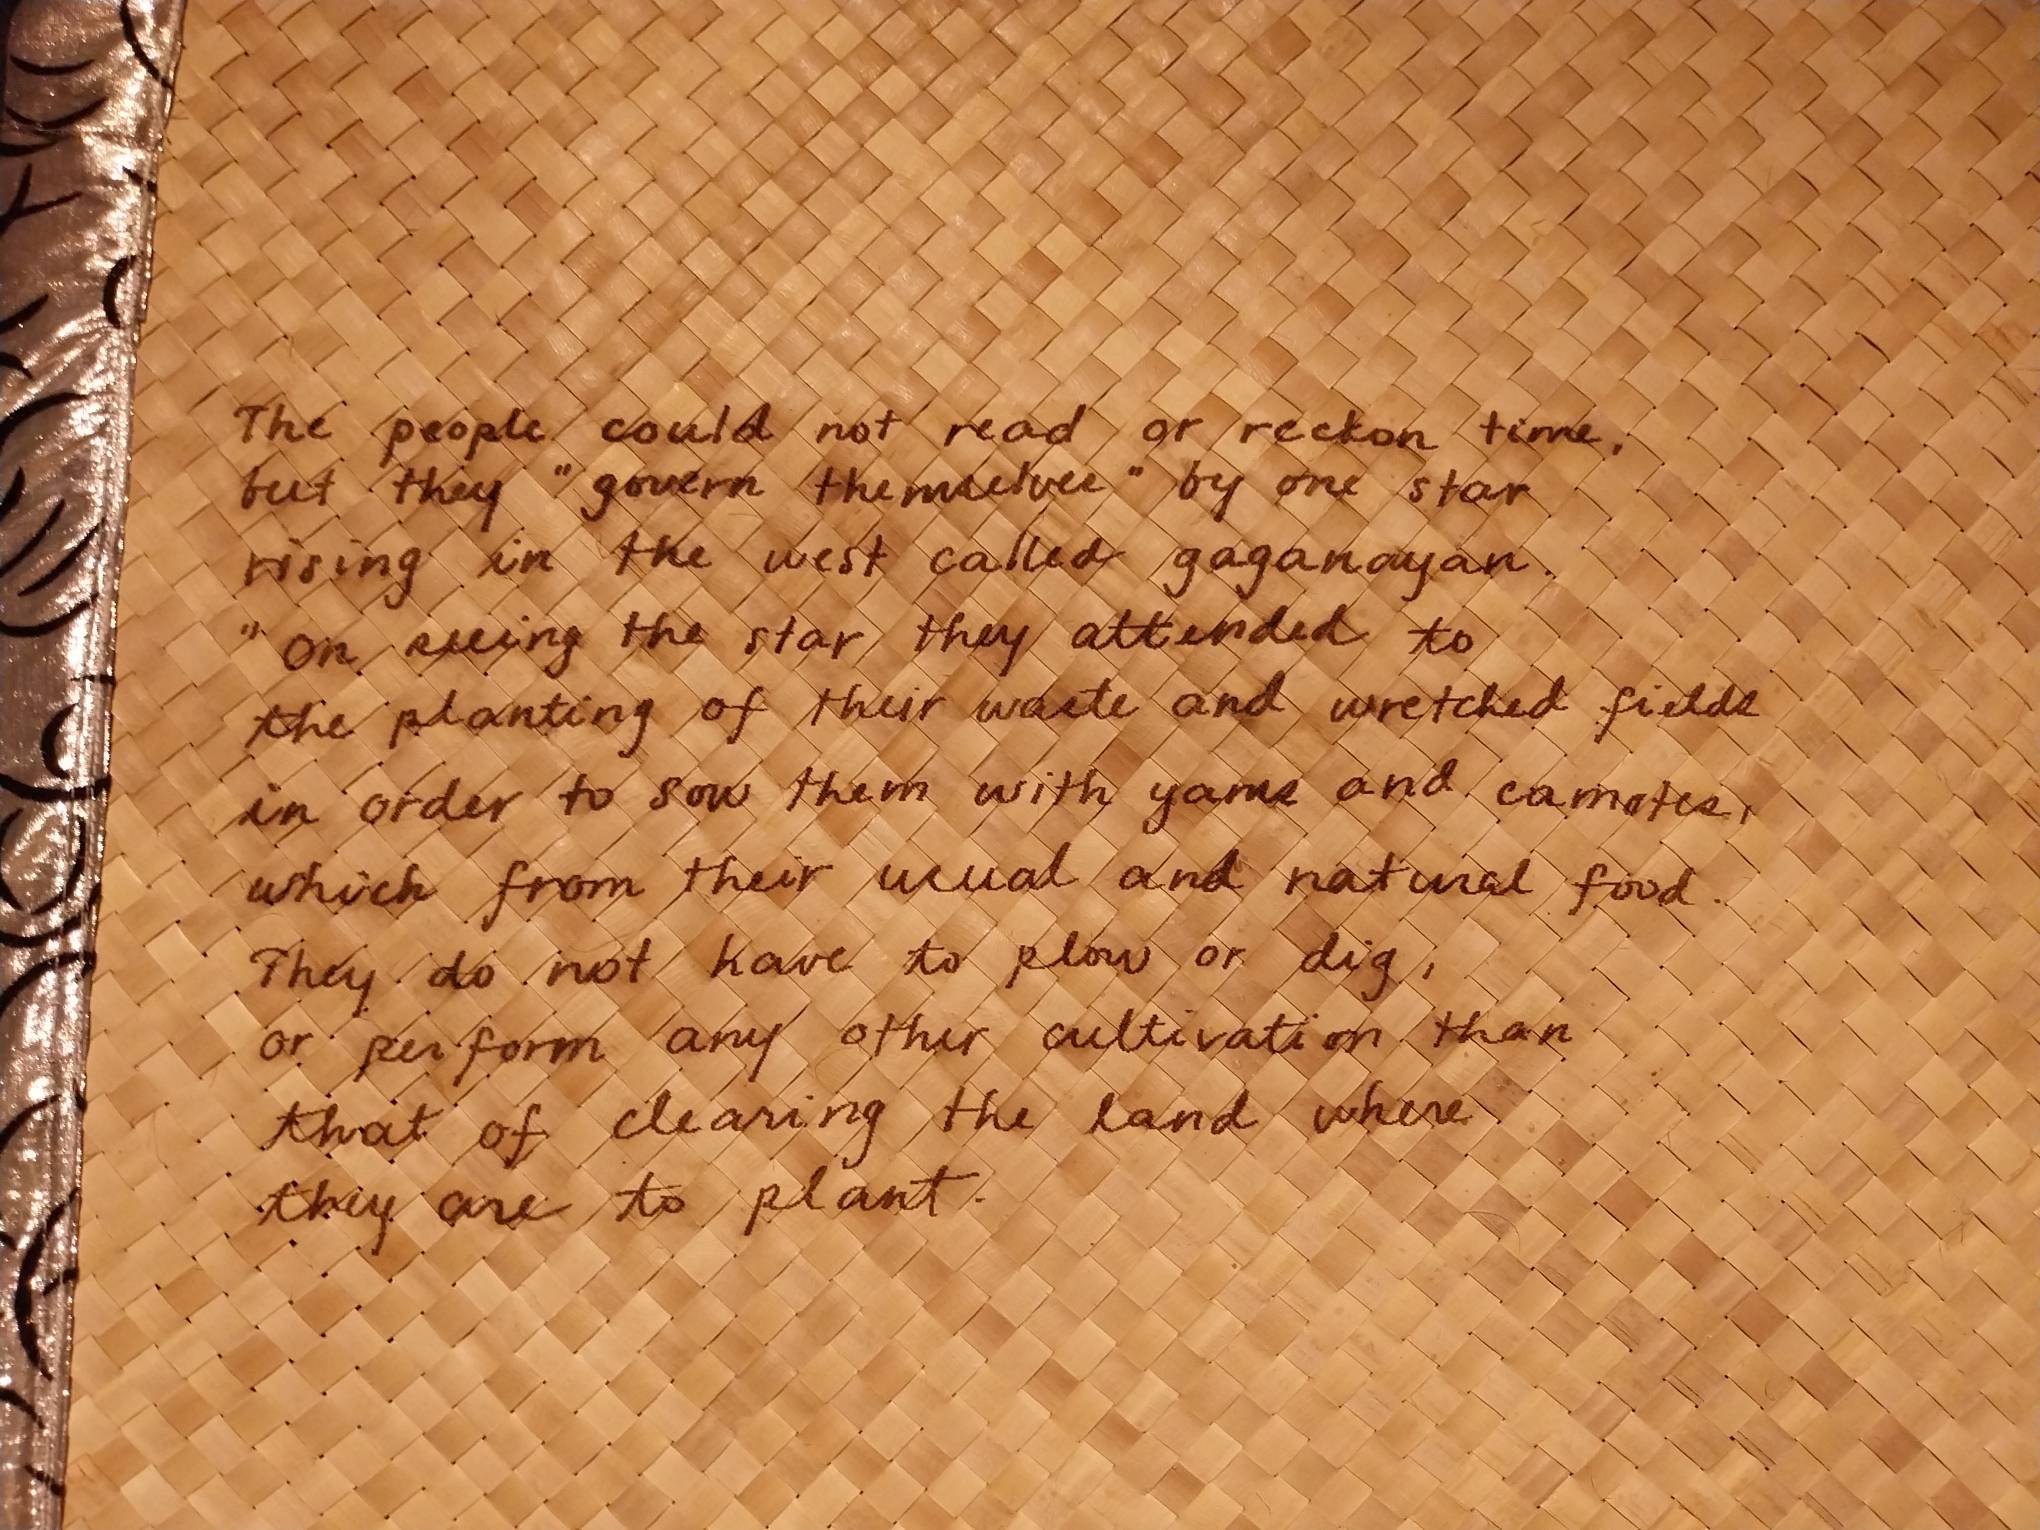 The people could not read or reckon time,
but they "govern themselves" by one star
rising in the west called gaganayan.
"On seeing the star they attended to
the planting of their waste and wretched fields
in order to sow them with yams and camotes,
which from their usual and natural food.
They do not have to plow or dig,
or perform any other cultivation than
that of clearing the land where
they are to plant.